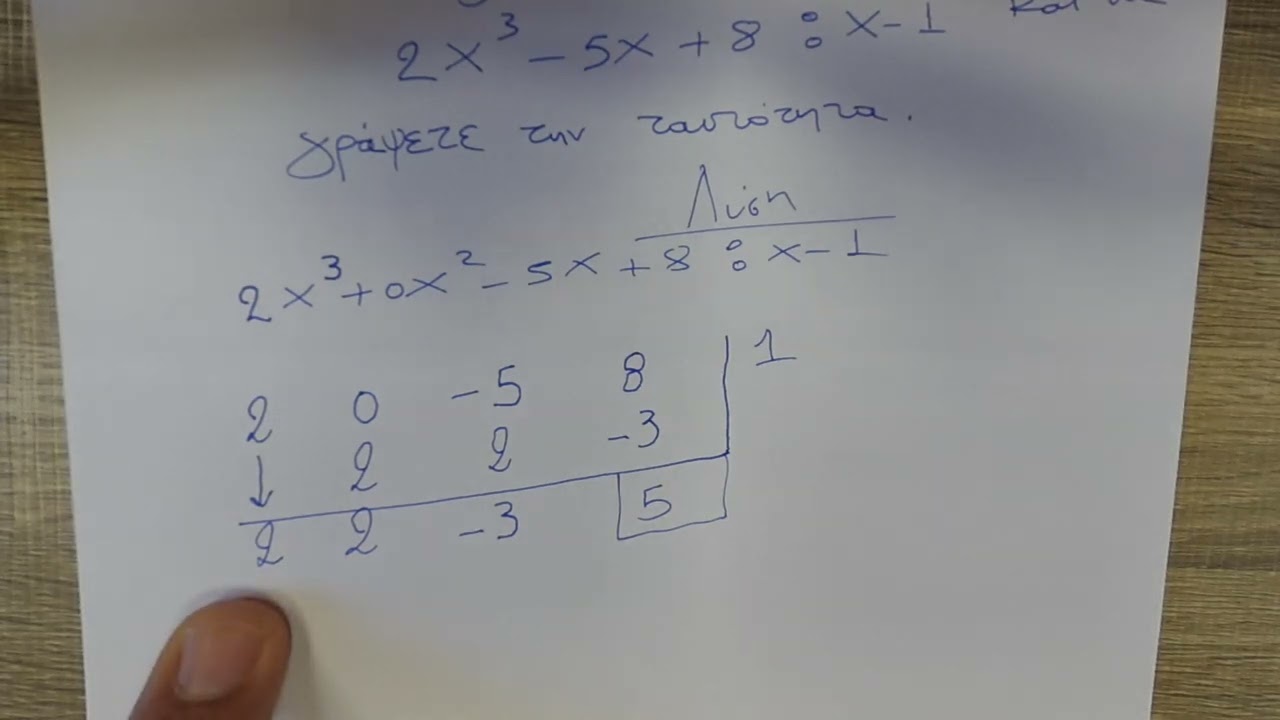 2x³ - 5x + 8 : x - 1 και να
γράψετε την ταυτότητα.
Λύση
2x³ + 0x² - 5x + 8 : x - 1
2 0 -5 8 1
↓ 2 2 -3
2 2 -3 5